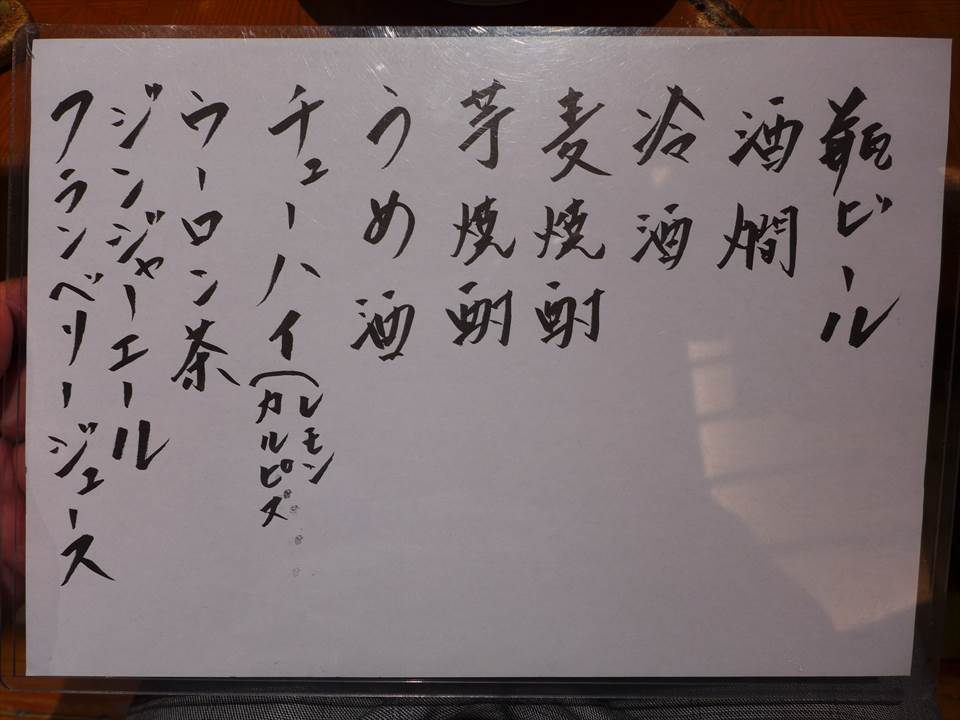 瓶ビール
酒燗
冷酒
麦焼酎
芋焼酎
うめ酒
チューハイ(レモン
カルピス
ウーロン茶
ジンジャーエール
フランベリージュース